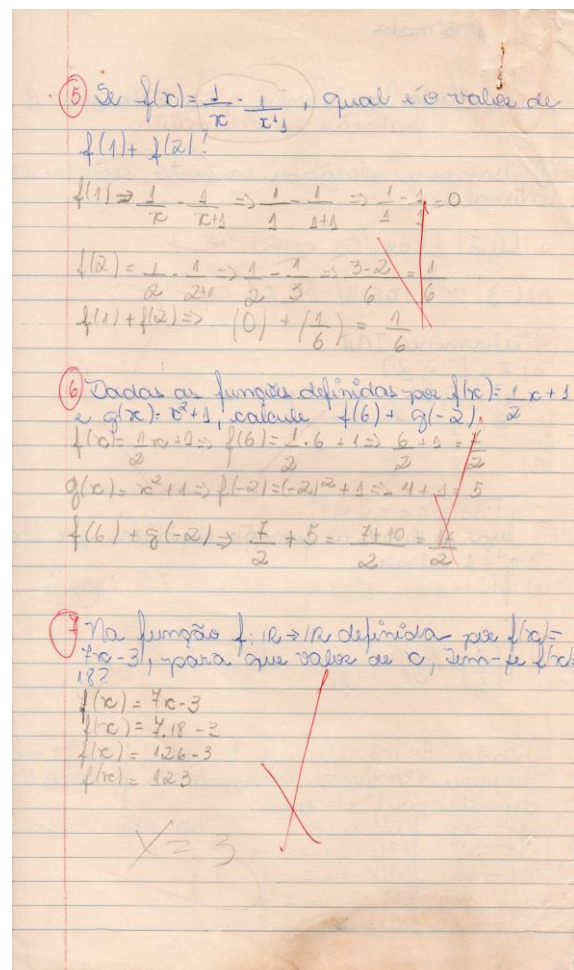 5) Se f(x) = 1/x · 1/x+1, qual é o valor de
f(1) + f(2)?
f(1) => 1/x - 1/x+1 => 1/1 - 1/1+1 => 1/1 - 1/1 = 0
f(2) = 1/2 - 1/2+1 => 1/2 - 1/3 => 3-2/6 = 1/6
f(1) + f(2) => (0) + (1/6) = 1/6
6) Dadas as funções definidas por f(x) = 1/2 x + 1
e g(x) = x²+1, calcule f(6) + g(-2)
f(x) = 1/2 x + 1 => f(6) = 1/2 · 6 + 1 => 6+1/2 = 7/2
g(x) = x²+1 => f(-2) = (-2)² + 1 => 4 + 1 = 5
f(6) + g(-2) => 7/2 + 5 = 7+10/2 = 17/2
7 Na função f: IR → IR definida por f(x) =
7x-3, para que valor de x, tem-se f(x) =
18?
f(x) = 7x-3
f(x) = 7.18-3
f(x) = 126-3
f(x) = 123
X = 3